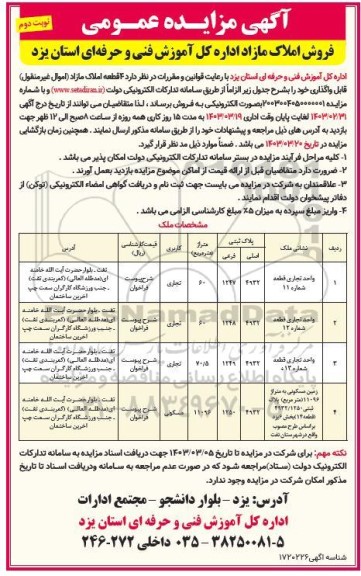 آگهی مزایده عمومی
نوبت دوم
فروش املاک مازاد اداره کل آموزش فنی و حرفه‌ای استان یزد
اداره کل آموزش فنی و حرفه ای استان یزد با رعایت قوانین و مقررات در نظر دارد ۴قطعه املاک مازاد (اموال غیرمنقول)
قابل واگذاری خود را بشرح جدول زیر الزاماً از طریق سامانه تدارکات الکترونیکی دولت (www.setadiran.ir) و با شماره
مزایده ۲۰۰۳۰۰۴۰۵۰۰۰۰۰۰۱ بصورت الکترونیکی به فروش برساند ، لذا متقاضیان می توانند از تاریخ درج آگهی
۱۴۰۳/۰۲/۳۱ لغایت پایان وقت اداری ۱۴۰۳/۰۳/۱۹ به مدت ۱۵ روز کاری همه روزه از ساعت ۸صبح الی ۱۲ ظهر جهت
بازدید به آدرس های ذیل مراجعه و پیشنهادات خود را از طریق سامانه مذکور ارسال نمایند . همچنین زمان بازگشایی
مزایده در تاریخ ۱۴۰۳/۰۳/۲۰ می باشد . ضمناً موارد ذیل مد نظر قرار گیرد.
۱- کلیه مراحل فرآیند مزایده در بستر سامانه تدارکات الکترونیکی دولت امکان پذیر می باشد .
۲- ضرورت دارد متقاضیان قبل از ارائه قیمت از اماکن موضوع مزایده بازدید بعمل آورند .
۳- علاقمندان به شرکت در مزایده می بایست جهت ثبت نام و دریافت گواهی امضاء الکترونیکی (توکن) از
دفاتر پیشخوان دولت اقدام نمایند .
۴- واریز مبلغ سپرده به میزان ۵٪ مبلغ کارشناسی الزامی می باشد .
مشخصات ملک
ردیف نشانی ملک پلاک ثبتی اصلی فرعی متراژ (مترمربع) کاربری قیمت کارشناسی (ریال) آدرس
۱ واحد تجاری قطعه شماره ۱۱ ۴۹۳۲ ۱۲۴۷ ۶۰ تجاری شرح پیوست فراخوان تفت ـ بلوار حضرت آیت الله خامنه ای(مدظله العالی) (کمربندی تفت) ـ جنب ورزشگاه کارگران سمت چپ آخرین ساختمان
۲ واحد تجاری قطعه شماره ۱۲ ۴۹۳۲ ۱۲۴۸ ۶۰ تجاری شرح پیوست فراخوان تفت ـ بلوار حضرت آیت الله خامنه ای(مدظله العالی) (کمربندی تفت) ـ جنب ورزشگاه کارگران سمت چپ آخرین ساختمان
۳ واحد تجاری قطعه شماره ۱۳ ۴۹۳۲ ۱۲۴۹ ۷۰/۵ تجاری شرح پیوست فراخوان تفت ـ بلوار حضرت آیت الله خامنه ای(مدظله العالی) (کمربندی تفت) ـ جنب ورزشگاه کارگران سمت چپ آخرین ساختمان
۴ زمین مسکونی به متراژ ۱۱۰۹۶(متر مربع) پلاک ثبتی ۴۹۳۲/۱۲۵۰ براساس طرح مصوب واقع در شهرستان تفت ۴۹۳۲ ۱۲۵۰ ۱۱۰۹۶ مسکونی شرح پیوست فراخوان تفت ـ بلوار حضرت آیت الله خامنه ای(مدظله العالی) (کمربندی تفت) ـ جنب ورزشگاه کارگران سمت چپ آخرین ساختمان
نکته مهم: برای شرکت در مزایده تا تاریخ ۱۴۰۳/۰۳/۰۵ جهت دریافت اسناد مزایده به سامانه تدارکات
الکترونیک دولت (ستاد)مراجعه شود که در صورت عدم مراجعه به سامانه ودریافت اسناد تا تاریخ
مذکور امکان شرکت در مزایده وجود ندارد.
آدرس: یزد - بلوار دانشجو - مجتمع ادارات
اداره کل آموزش فنی و حرفه ای استان یزد
۰۳۵-۳۸۲۵۰۰۸۱-۵ داخلی ۲۷۲-۲۴۶
شناسه آگهی ۱۷۲۰۲۲۶